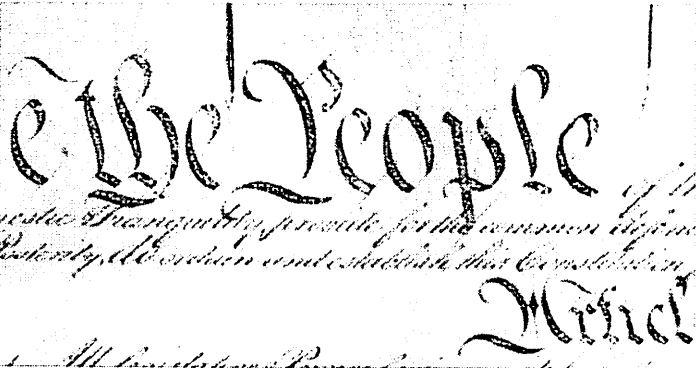 e the People of th
mestic Tranquility, provide for the common defenc
Posterity, do ordain and establish this Constitution
Articl
All legislative Powers herein